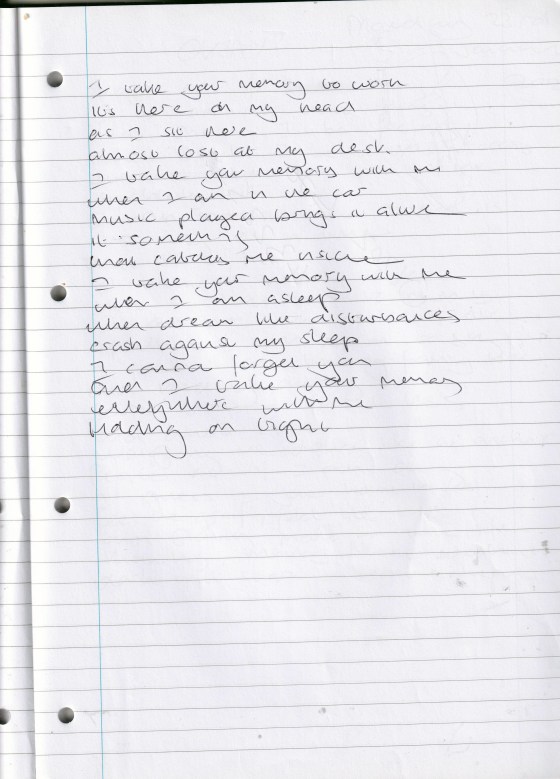 I take your memory to work
it's here in my head
as I sit here
almost lost at my desk.
I take your memory with me
when I am in the car
music played brings it alive
it
that catches me inside
I take your memory with me
when I am asleep
when dream like disturbances
crash against my sleep
I cannot forget you
I take your memory
everywhere with me
holding on tight